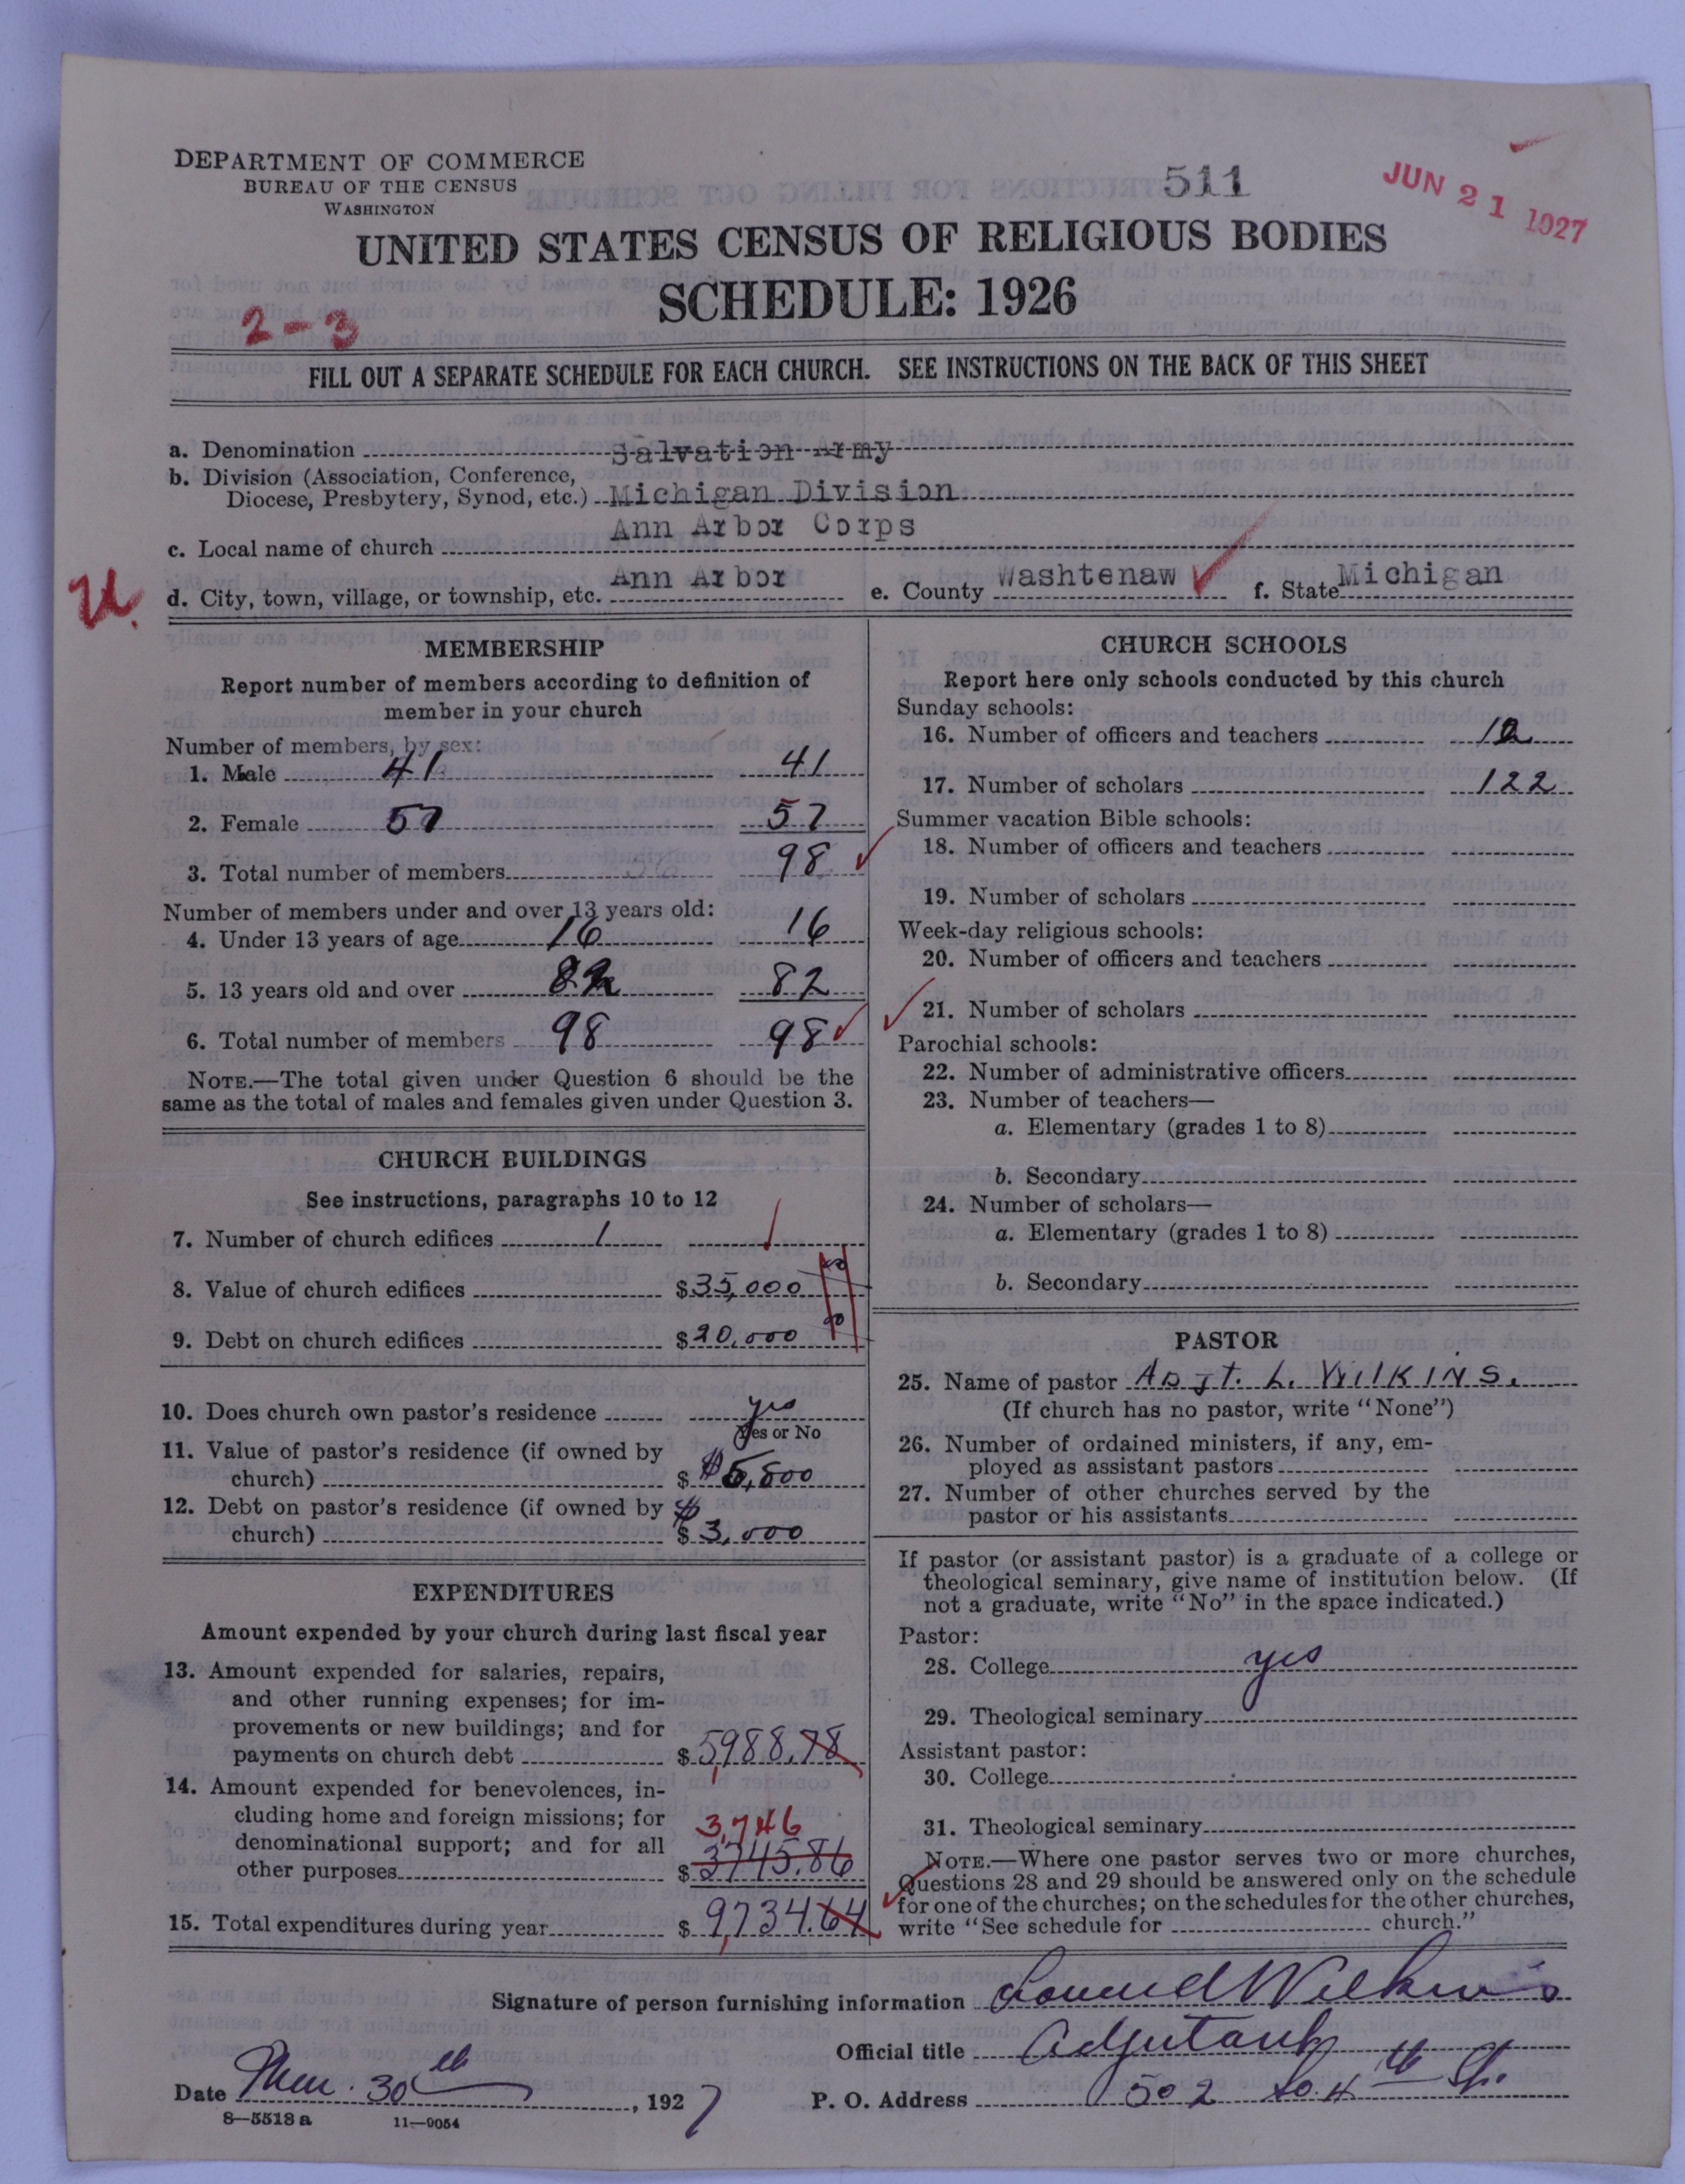 DEPARTMENT OF COMMERCE
BUREAU OF THE CENSUS
WASHINGTON
511
JUN 21 1927
UNITED STATES CENSUS OF RELIGIOUS BODIES
SCHEDULE: 1926
2-3
FILL OUT A SEPARATE SCHEDULE FOR EACH CHURCH. SEE INSTRUCTIONS ON THE BACK OF THIS SHEET
a. Denomination Salvation Army
b. Division (Association, Conference,
Diocese, Presbytery, Synod, etc.) Michigan Division
c. Local name of church Ann Arbor Corps
d. City, town, village, or township, etc. Ann Arbor e. County Washtenaw f. State Michigan
MEMBERSHIP
Report number of members according to definition of
member in your church
Number of members, by sex:
1. Male 41 41
2. Female 57 57
3. Total number of members 98
Number of members under and over 13 years old:
4. Under 13 years of age 16 16
5. 13 years old and over 82 82
6. Total number of members 98 98
NOTE.—The total given under Question 6 should be the
same as the total of males and females given under Question 3.
CHURCH BUILDINGS
See instructions, paragraphs 10 to 12
7. Number of church edifices 1
8. Value of church edifices $35,000
9. Debt on church edifices $20,000
10. Does church own pastor's residence yes
Yes or No
11. Value of pastor's residence (if owned by
church) $ $5,800
12. Debt on pastor's residence (if owned by
church) $ $3,000
EXPENDITURES
Amount expended by your church during last fiscal year
13. Amount expended for salaries, repairs,
and other running expenses; for im-
provements or new buildings; and for
payments on church debt $5988.78
14. Amount expended for benevolences, in-
cluding home and foreign missions; for
denominational support; and for all 3,746
other purposes $3745.86
15. Total expenditures during year $9,734.64
CHURCH SCHOOLS
Report here only schools conducted by this church
Sunday schools:
16. Number of officers and teachers 12
17. Number of scholars 122
Summer vacation Bible schools:
18. Number of officers and teachers
19. Number of scholars
Week-day religious schools:
20. Number of officers and teachers
21. Number of scholars
Parochial schools:
22. Number of administrative officers
23. Number of teachers—
a. Elementary (grades 1 to 8)
b. Secondary
24. Number of scholars—
a. Elementary (grades 1 to 8)
b. Secondary
PASTOR
25. Name of pastor ADJT. L. WILKINS.
(If church has no pastor, write "None")
26. Number of ordained ministers, if any, em-
ployed as assistant pastors
27. Number of other churches served by the
pastor or his assistants
If pastor (or assistant pastor) is a graduate of a college or
theological seminary, give name of institution below. (If
not a graduate, write "No" in the space indicated.)
Pastor:
28. College yes
29. Theological seminary
Assistant pastor:
30. College
31. Theological seminary
NOTE.—Where one pastor serves two or more churches,
Questions 28 and 29 should be answered only on the schedule
for one of the churches; on the schedules for the other churches,
write "See schedule for church."
Signature of person furnishing information Wilkins
Official title Adjutant
Date 30th, 1927 P. O. Address 502 So 4th St.
8—5518 a 11—9054